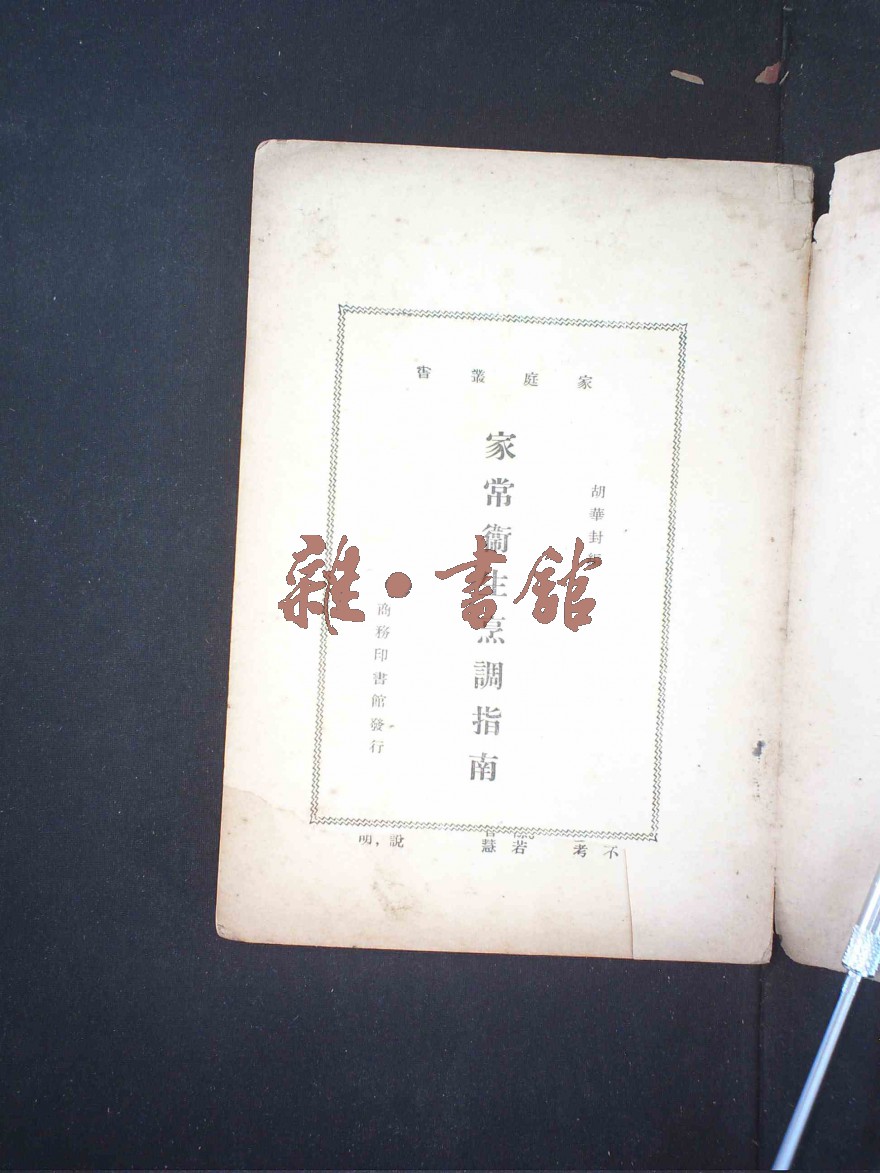 家庭叢書
胡華封編
家常衞生烹調指南
商務印書館發行
雜·書館
不
考
若
慧
說，明